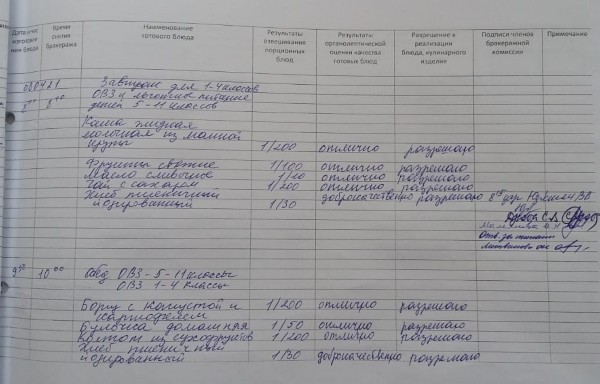 Дата и час изготовления блюда
Время снятия бракеража
Наименование готового блюда
Результаты взвешивания порционных блюд
Результаты органолептической оценки качества готовых блюд
Разрешение к реализации блюда, кулинарного изделия
Подписи членов бракеражной комиссии
Примечание
Завтрак для 1-4 классов
ОВЗ и льготное питание
детей 5-11 классов
Каша жидкая
молочная из манной
крупы 1/200 отлично разрешаю
Фрукты свежие 1/100 отлично разрешаю
Масло сливочное 1/10 отлично разрешаю
Чай с сахаром 1/200 отлично разрешаю
Хлеб пшеничный доброкачественно разрешаю
йодированный 1/30
Отв. за питание
9 30 10 00 Обед ОВЗ - 5-11 классы
ОВЗ 1-4 классы
Борщ с капустой и 1/200 отлично разрешаю
картофелем
Булочка домашняя 1/50 отлично разрешаю
Компот из сухофруктов 1/200 отлично разрешаю
Хлеб пшеничный
йодированный 1/30 доброкачественно разрешаю